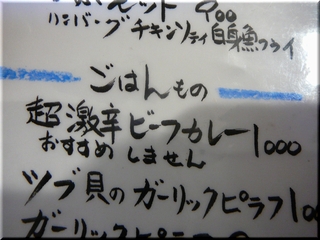 ット 900
ハンバーグチキンソティ白身魚フライ
ごはんもの
超激辛ビーフカレー1000
おすすめしません
ツブ貝のガーリックピラフ10
ガーリックピラフ